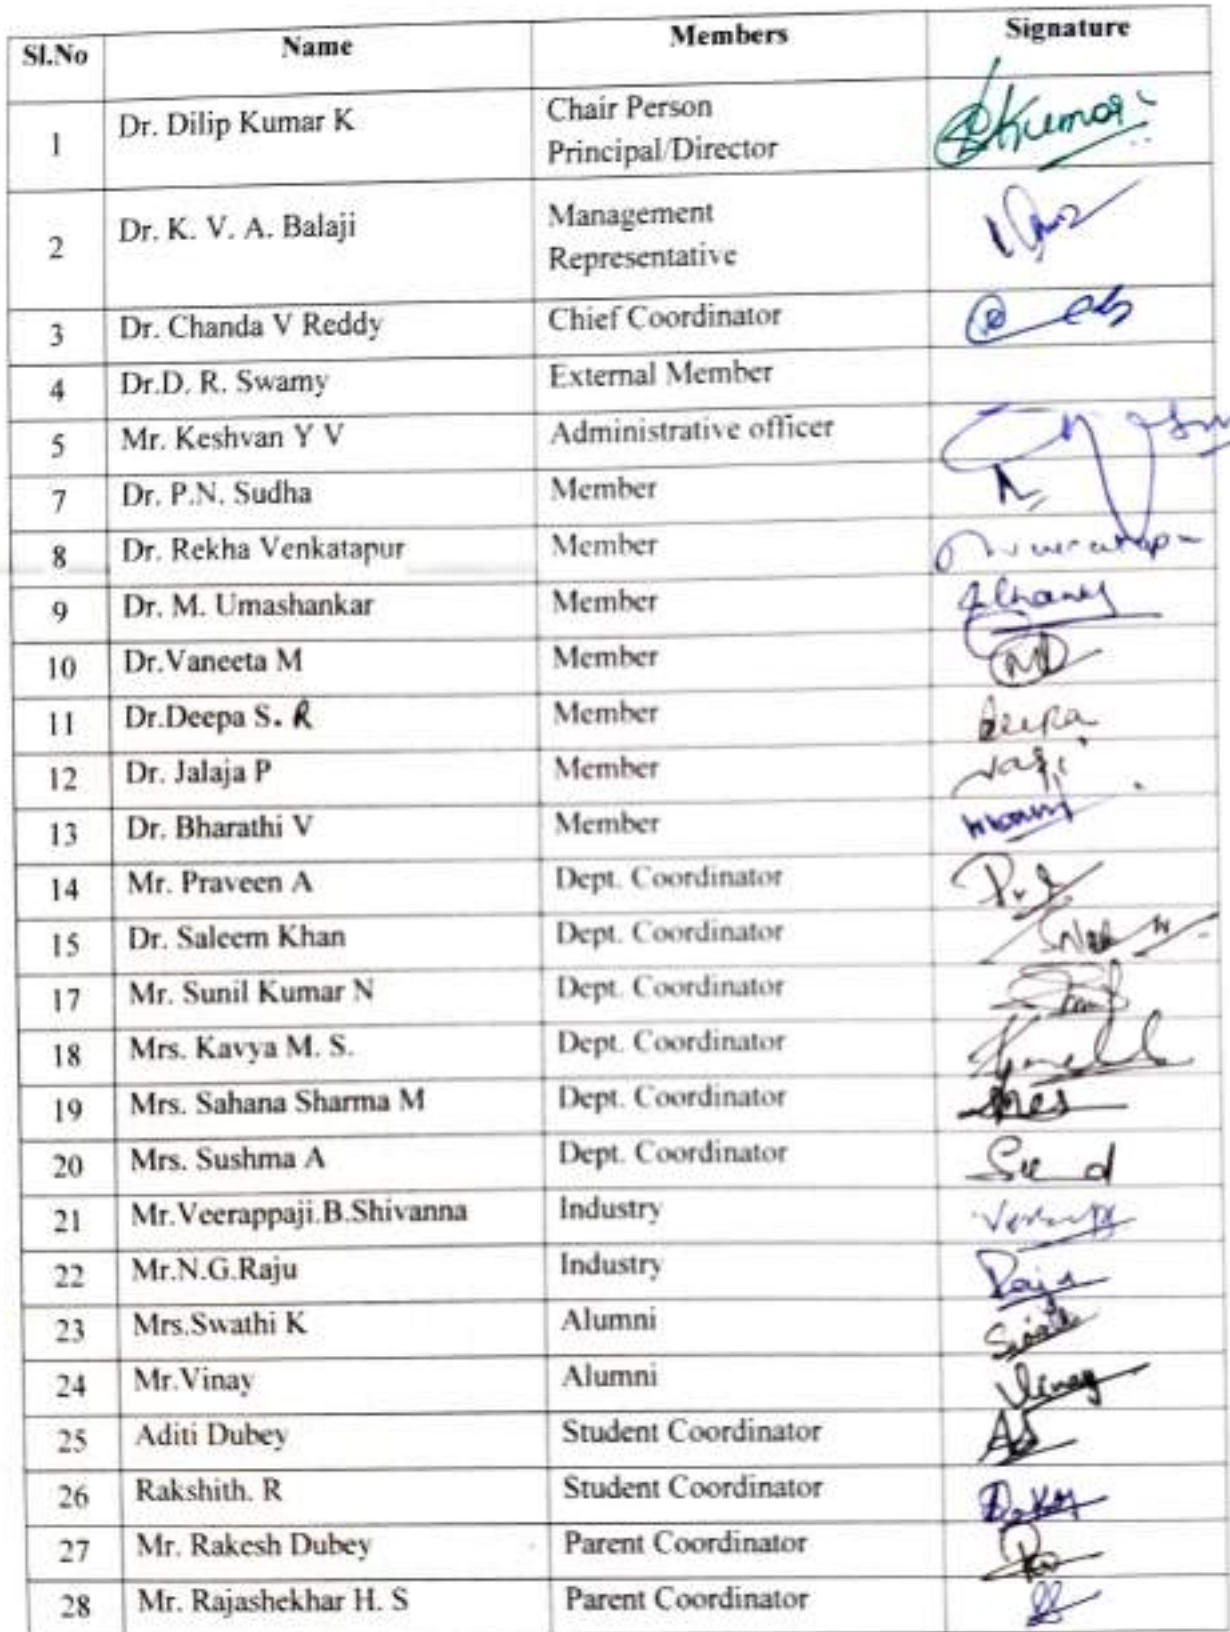 Sl.No Name Members Signature
1 Dr. Dilip Kumar K Chair Person
Principal/Director
Kumar
2 Dr. K. V. A. Balaji Management
Representative
3 Dr. Chanda V Reddy Chief Coordinator
4 Dr.D. R. Swamy External Member
5 Mr. Keshvan Y V Administrative officer
7 Dr. P.N. Sudha Member
8 Dr. Rekha Venkatapur Member
9 Dr. M. Umashankar Member
10 Dr.Vaneeta M Member
11 Dr.Deepa S. R Member Deepa
12 Dr. Jalaja P Member
13 Dr. Bharathi V Member
14 Mr. Praveen A Dept. Coordinator
15 Dr. Saleem Khan Dept. Coordinator
17 Mr. Sunil Kumar N Dept. Coordinator
18 Mrs. Kavya M. S. Dept. Coordinator
19 Mrs. Sahana Sharma M Dept. Coordinator
20 Mrs. Sushma A Dept. Coordinator
21 Mr.Veerappaji.B.Shivanna Industry
22 Mr.N.G.Raju Industry Raju
23 Mrs.Swathi K Alumni
24 Mr.Vinay Alumni Vinay
25 Aditi Dubey Student Coordinator
26 Rakshith. R Student Coordinator
27 Mr. Rakesh Dubey Parent Coordinator
28 Mr. Rajashekhar H. S Parent Coordinator